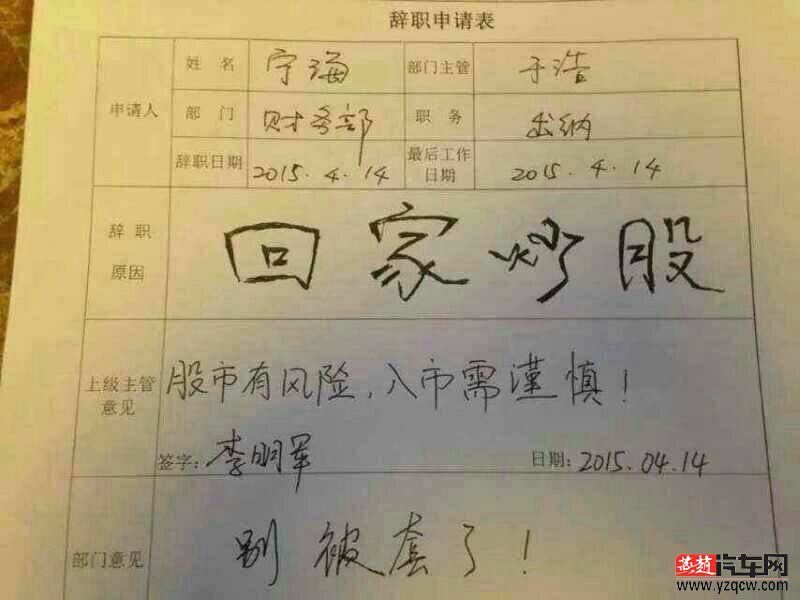 辞职申请表
申请人 姓名 宁海 部门主管 于浩
部门 财务部 职务 出纳
辞职日期 2015.4.14 最后工作日期 2015.4.14
辞职原因 回家炒股
上级主管意见 股市有风险,入市需谨慎!
签字: 李明军 日期: 2015.04.14
部门意见 别被套了!
芜赵汽车网
www.yzqcw.com